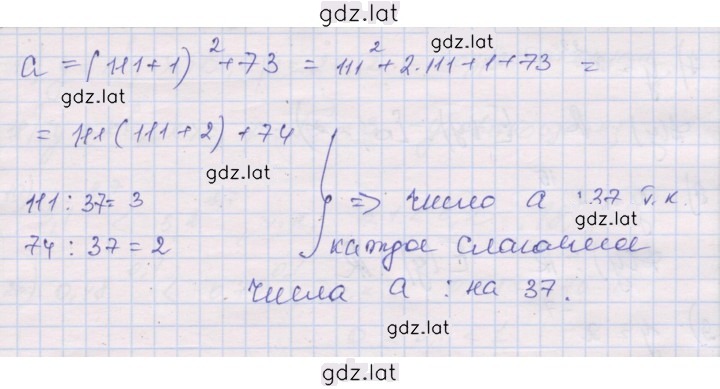 gdz.lat
a = (111+1)² + 73 = 111² + 2·111 + 1 + 73 =
gdz.lat
gdz.lat
= 111(111+2) + 74
gdz.lat
111 : 37 = 3
=> число a ⋮ 37 т.к.
gdz.lat
74 : 37 = 2
каждое слагаемое
числа a : на 37.
gdz.lat
gdz.lat